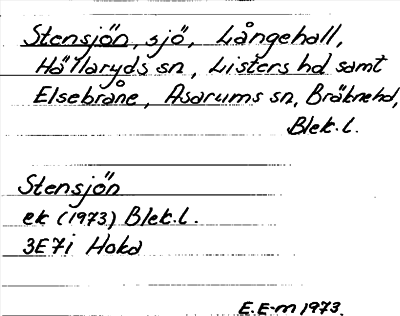 Stensjön, sjö, Långehall,
Hällaryds sn, Listers hd samt
Elsebråne, Asarums sn, Bräknehd,
Blek.l.
Stensjön
ek (1973) Blek.l.
3E7i Hoka
E.E-m 1973.